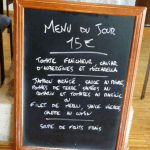 MENU DU JOUR
15€
TOMATE FRAICHEUR CAVIAR
D'AUBERGINES ET MOZZARELLA
JAMBON BRAISÉ SAUCE AU POIVRE
POMMES DE TERRE SAUTÉES AU
ROMARIN ET TOMATES AU BASILIC
OU
FILET DE MERLU, SAUCE VIERGE
GRATIN AU
SOUPE DE FRUITS FRAIS